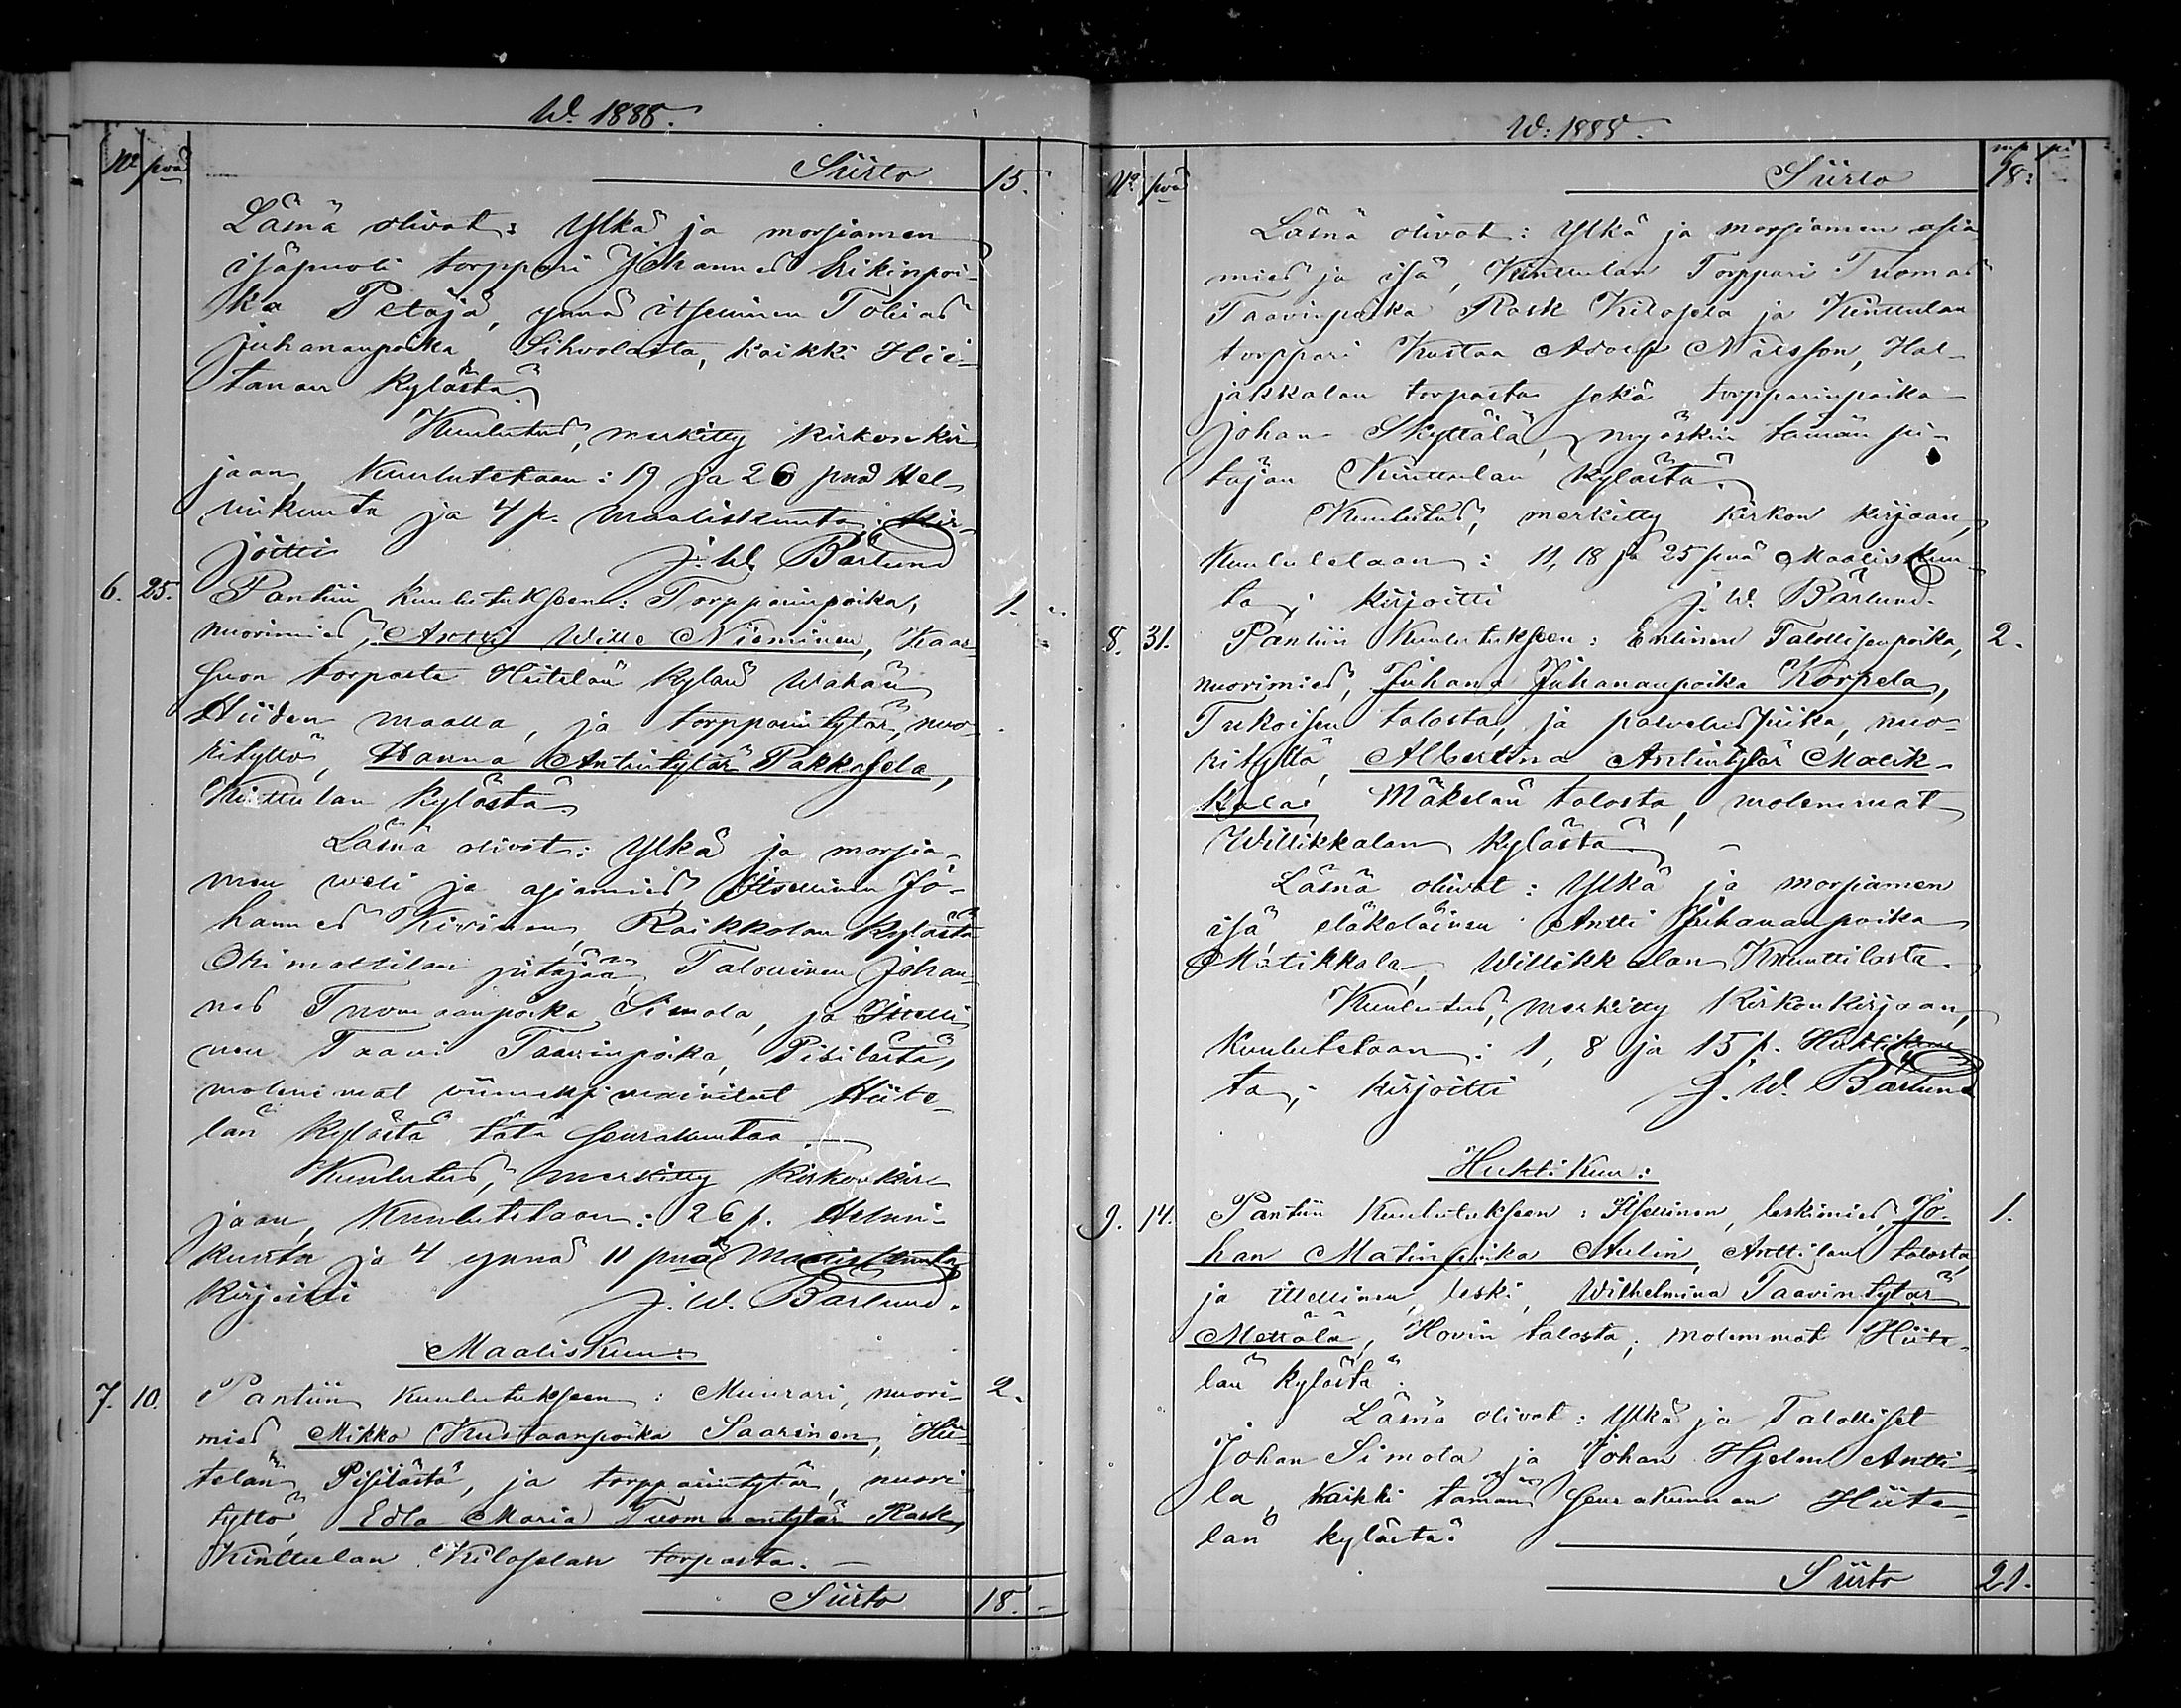 W. 1888.
No pvä
Siirto 15.
Läsnä olivat: Ylkä ja morsiamen
isäpuoli torppari Johannes Erikinpoi-
ka Petäjä, ynnä itsellinen Tobias
Juhananpoika Sihvolasta, kaikki Hii-
tanan kylästä.
Kuulutus, merkitty kirkonkir-
jaan, Kuulutetaan: 19 ja 26 pnä Hel-
mikuuta ja 4 p. Maaliskuuta: Kir-
joitti J. W. Bärlund
6. 25. Pantiin kuulutukseen: Torpparinpoika, 1.
nuorimies, Antti Wille Nieminen, Kaar-
suon torpasta Hiitelän kylän Wähän
Hiiden maalla, ja torpparintytär, nuo-
rityttö, Hanna Antintytär Pakkasela,
Kinttulan kylästä.
Läsnä olivat: Ylkä ja morsia-
men weli ja asiamies, Itsellinen Jo-
hannes Kivinen, Raikkolan kylästä
Orimattilan pitäjää, Talollinen Johan-
nes Tuomaanpoika Simola, ja Itselli-
nen Taavi Taavinpoika, Pisilästä,
molemmat viimeksi mainitut Hiite-
län kylästä tätä seurakuntaa.
Kuulutus, merkitty kirkonkir-
jaan, Kuulutetaan: 26 p. Helmi-
kuuta ja 4 ynnä 11 pnä Maaliskuuta
Kirjoitti J. W. Bärlund.
Maaliskuu:
7. 10. Pantiin kuulutukseen: Muurari, nuori- 2.
mies, Mikko Kustaanpoika Saarinen, Hii-
telän Pisilästä, ja torpparintytär, nuori-
tyttö, Edla Maria Tuomaantytär Rask,
Kinttulan Kiloselan torpasta.
Siirto 18.
W: 1888.
No pvä mk pi
Siirto 18:
Läsnä olivat: Ylkä ja morsiamen asia-
mies ja isä, Kinttulan Torppari Tuomas
Taavinpoika Rask Kilosela ja Kinttulan
torppari Kustaa Adolf Nilsson, Hal-
jakkalan torpasta sekä torpparinpoika
Johan Skyttälä, myöskin tämän pi-
täjän Kinttulan kylästä.
Kuulutus, merkitty kirkon kirjaan,
Kuulutetaan: 11, 18 ja 25 pnä Maaliskuu-
ta; kirjoitti J. W. Bärlund.
8. 31. Pantiin Kuulutukseen: Entinen Talollisenpoika, 2.
nuorimies, Juhana Juhananpoika Korpela,
Tukoisen talosta, ja palveluspiika, nuo-
rityttö, Albertina Antintytär Matik-
kala, Mäkelän talosta, molemmat
Willikkalan kylästä.
Läsnä olivat: Ylkä ja morsiamen
isä eläkeläinen Antti Juhananpoika
Matikkala, Willikkalan Knuuttilasta.
Kuulutus, merkitty Kirkonkirjaan,
Kuulutetaan: 1, 8 ja 15 p. Huhtikuu-
ta; kirjoitti J. W. Bärlund
Huhtikuu:
9. 14. Pantiin Kuulutukseen: Itsellinen, leskimies, Jo- 1.
han Matinpoika Aulin, Anttilan talosta,
ja itsellinen, leski, Wilhelmina Taavintytär
Mettälä, Hovin talosta; molemmat Hiite-
län kylästä.
Läsnä olivat: Ylkä ja Talolliset
Johan Simola ja Johan Hjelm Antti-
la, kaikki tämän Seurakunnan Hiite-
län kylästä.
Siirto 21.